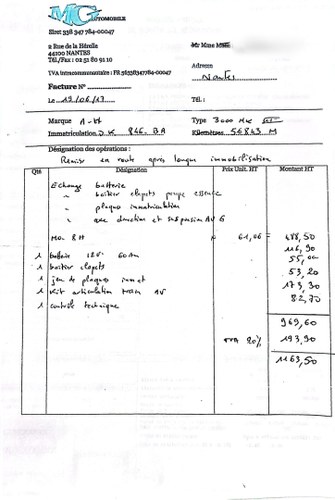 MG AUTOMOBILE
Siret 338 347 784-00047
2 Rue de la Bérelle
44100 NANTES
Tél/Fax : 02 51 80 91 10
Mr Mme
Adresse
TVA intracommunautaire : FR 56338347784-00047
Nantes
Facture N°
Le 19/06/17
Tél :
Marque A-H Type 3000 MK III
Immatriculation DK 846. BA Kilomètres 56843 M
Désignation des opérations :
Remise en route après longue immobilisation
Qté Désignation Prix Unit. HT Montant HT
Echange batterie
" boitier clapets pompe essence
" plaques immatriculation
" axe direction et suspension AV G
MO. 8H 61,06 = 488,50
1 batterie 12V. 60Am 116,90
1 boitier clapets 55,00
1 jeu de plaques immat 53,20
1 Kit articulation train AV 173,30
1 contrôle technique 82,70
969,60
TVA 20% 193,90
1163,50